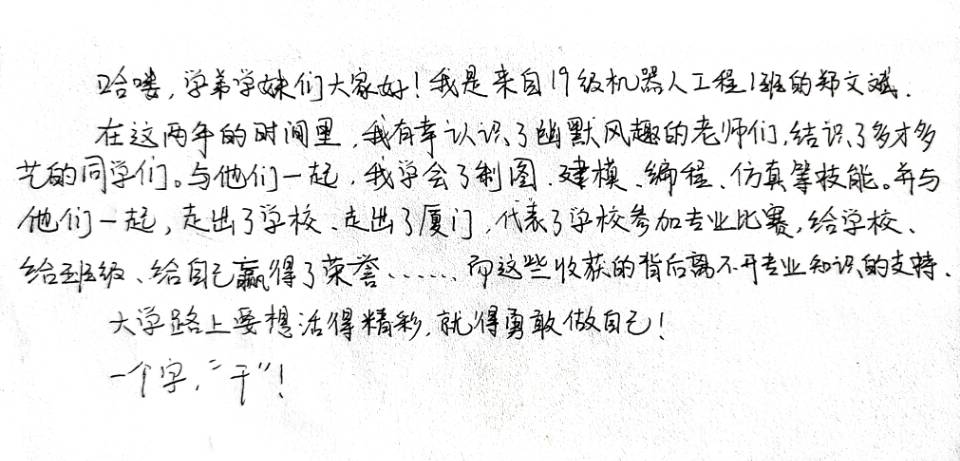 哈喽,学弟学妹们大家好!我是来自19级机器人工程1班的郑文斌.
在这两年的时间里,我有幸认识了幽默风趣的老师们,结识了多才多
艺的同学们。与他们一起,我学会了制图、建模、编程、仿真等技能。并与
他们一起,走出了学校、走出了厦门,代表了学校参加专业比赛,给学校、
给班级、给自己赢得了荣誉……而这些收获的背后离不开专业知识的支持.
大学路上要想活得精彩,就得勇敢做自己!
一个字,“干”!